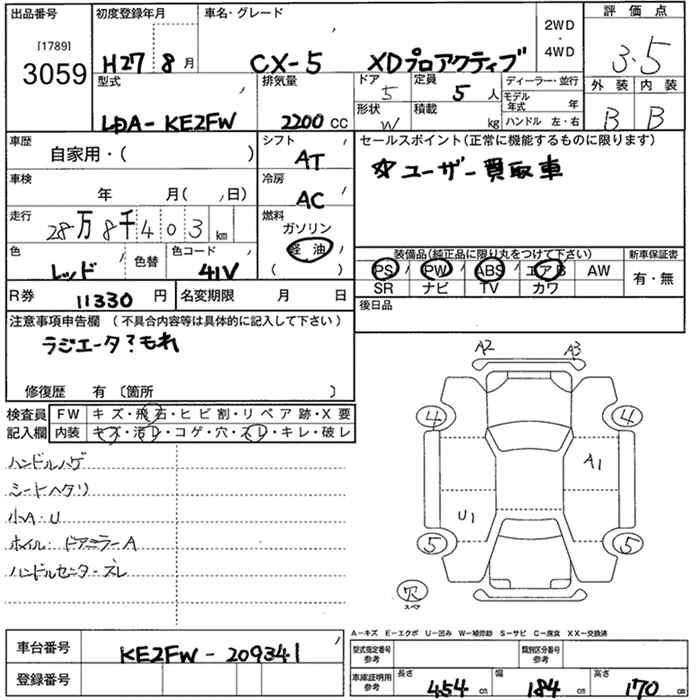 出品番号
[1789]
3059
初度登録年月
H27 8 月
車名・グレード
CX-5 XDプロアクティブ
2WD
・
4WD
評価点
3.5
外装 内装
B B
型式
LDA-KE2FW
排気量
2200 CC
ドア
5
定員
5 人
形状
W
積載
kg
ディーラー・並行
モデル年式 年
ハンドル 左・右
車歴
自家用・( )
シフト
AT
車検
年 月( 日)
冷房
AC
走行
28万8千403 km
燃料
ガソリン
軽油
( )
色
レッド
色替
色コード
41V
R券
11330 円
名変期限 月 日
セールスポイント(正常に機能するものに限ります)
☆ユーザー買取車
装備品(純正品に限り丸をつけて下さい)
PS PW ABS エアB AW
SR ナビ TV カワ
新車保証書
有・無
後日品
注意事項申告欄 (不具合内容等は具体的に記入して下さい)
ラジエータ?もれ
修復歴 有 〔箇所 〕
検査員記入欄
FW キズ・飛石・ヒビ割・リペア跡・X要
内装 キズ・汚レ・コゲ・穴・スレ・キレ・破レ
ハンドルハゲ
シートヘタリ
小A・U
ホイル・ドアミラーA
ハンドルセンタースレ
A2 A3
4 4
A1
U1
5 5
穴
スペア
A-キズ E-エクボ U-凹み W-補修跡 S-サビ C-腐食 XX-交換済
車台番号
KE2FW-209341
登録番号
型式指定番号
参考
類別区分番号
参考
車庫証明用
参考
長さ 454 cm
幅 184 cm
高さ 170 cm